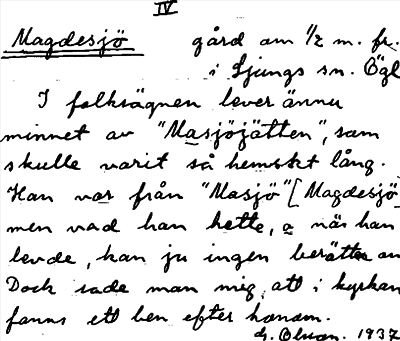 IV
Magdesjö gård om 1/2 m. fr.
i Ljungs sn. Ögl
I folksägnen lever ännu
minnet av "Masjöjätten", som
skulle varit så hemskt lång.
Han var från "Masjö" [Magdesjö
men vad han hette, o när han
levde, kan ju ingen berätta om
Dock sade man mig, att i kyrkan
fanns ett ben efter honom.
G. Olsson. 1937